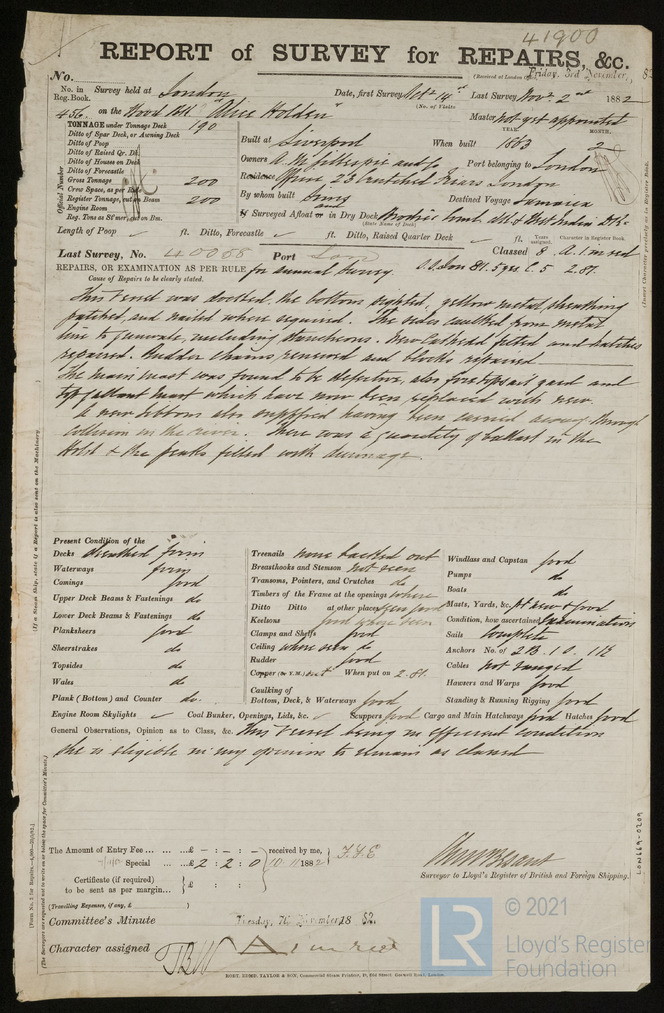 41900
REPORT of SURVEY for REPAIRS, &c.
No. (Received at London Friday, 3rd November, 82
No. in Reg. Book. Survey held at London Date, first Survey Octr 14th Last Survey Novr 2nd 1882
456. on the Wood Bk "Alice Holden" (No. of Visits Master not yet appointed
TONNAGE under Tonnage Deck 190
Ditto of Spar Deck, or Awning Deck
Ditto of Poop
Ditto of Raised Qr. Dk.
Ditto of Houses on Deck
Ditto of Forecastle
Gross Tonnage 200
Crew Space, as per Rule
Register Tonnage, cut on Beam 200
Engine Room
Reg. Tons as St'mer, cut on Bm.
Official Number
Built at Liverpool When built YEAR. 1863 MONTH. 2
Owners A. M. Gillespie and Co Port belonging to London
Residence Office 23 Crutched Friars London
By whom built Destined Voyage Jamaica
If Surveyed Afloat or in Dry Dock (State Name of Dock)
Length of Poop ft. Ditto, Forecastle ft. Ditto, Raised Quarter Deck ft. Years assigned. Character in Register Book.
Last Survey, No. 40068 Port Lon Classed 8 A.1. in red
REPAIRS, OR EXAMINATION AS PER RULE for annual Survey. S.S. Lon 81. 5 yrs C. 5 2.81.
Cause of Repairs to be clearly stated.
This vessel was docked, the bottom sighted, yellow metal sheathing
patched, and nailed where required. The sides caulked from metal
line to gunwale, including stanchions. New cathead fitted and hatches
repaired. Rudder chains renewed and blocks repaired
The main mast was found to be defective, also fore topsail yard and
top gallant mast which have now been replaced with new.
A new jibboom also supplied having been carried away through
collision in the river. There was a quantity of ballast in the
Hold & the peaks filled with dunnage.
Present Condition of the
Decks sheathed firm
Waterways firm
Comings good
Upper Deck Beams & Fastenings do
Lower Deck Beams & Fastenings do
Planksheers good
Sheerstrakes do
Topsides do
Wales do
Plank (Bottom) and Counter do.
Treenails none backed out
Breasthooks and Stemson not seen
Transoms, Pointers, and Crutches do
Timbers of the Frame at the openings where
Ditto Ditto at other places seen good
Keelsons good where seen
Clamps and Shelfs good
Ceiling where seen do
Rudder good
Copper (or Y.M.) When put on 2.81.
Caulking of
Bottom, Deck, & Waterways good
Windlass and Capstan good
Pumps do
Boats do
Masts, Yards, &c. pt new & good
Condition, how ascertained Examination
Sails complete
Anchors No. of 2B. 1 S. 1 K
Cables not ranged
Hawsers and Warps good
Standing & Running Rigging good
Engine Room Skylights Coal Bunker, Openings, Lids, &c. Scuppers good Cargo and Main Hatchways good Hatches good
General Observations, Opinion as to Class, &c. This vessel being in efficient condition
she is eligible in my opinion to remain as classed
The Amount of Entry Fee ... ... ...£ - : - : - received by me,
Special ... ...£ 2 : 2 : 0 10/11 1882
Certificate (if required)
to be sent as per margin... £ : :
(Travelling Expenses, if any, £ )
Surveyor to Lloyd's Register of British and Foreign Shipping.
Committee's Minute Tuesday, 7th November, 1882.
Character assigned A 1 in red
ROBT. EDMD. TAYLOR & SON, Commercial Steam Printers, 19, Old Street, Goswell Road, London.
(If a Steam Ship, state if a Report is also sent on the Machinery.
LON669-0209
© 2021
LR
Lloyd's Register
Foundation